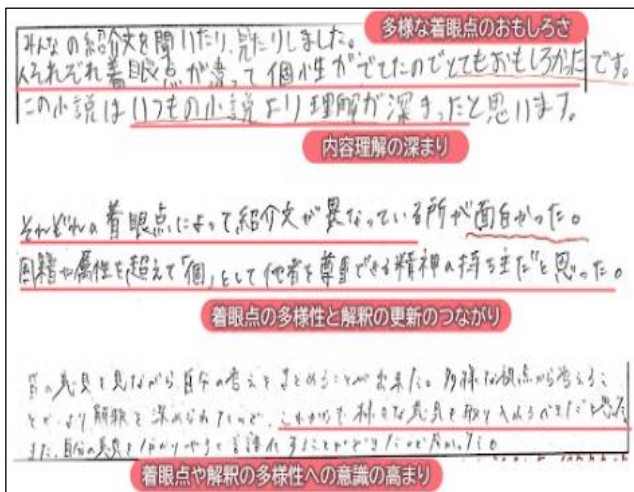 多様な着眼点のおもしろさ
みんなの紹介文を聞いたり、見たりしました。
人それぞれ着眼点が違って個性がでてたのでとてもおもしろかったです。
この小説はいつもの小説より理解が深まったと思います。
内容理解の深まり
それぞれの着眼点によって紹介文が異なっている所が面白かった。
国籍や属性を超えて「個」として他者を尊重できる精神の持ち主だと思った。
着眼点の多様性と解釈の更新のつながり
皆の意見を見ながら、自分の考えをまとめることが出来た。多様な視点から考えるこ
とで、より解釈を深められたので、これからも様々な意見を取り入れるべきだと思った。
また、自分の意見を分かりやすく言語化することができたので良かった。
着眼点や解釈の多様性への意識の高まり